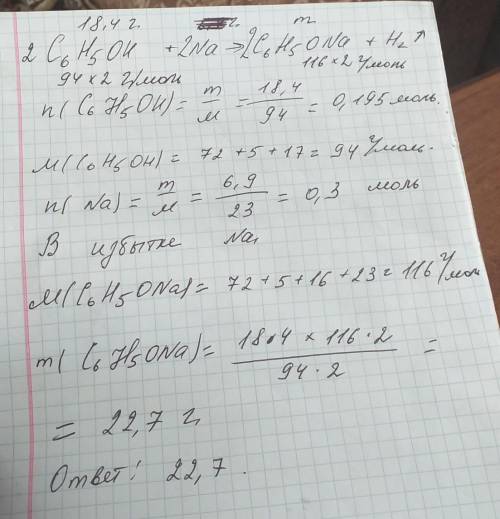 18,4 г. г. m
2 C₆H₅OH + 2Na → 2C₆H₅ONa + H₂↑
94×2 г/моль 116×2 г/моль
n(C₆H₅OH) = m/M = 18,4/94 = 0,195 моль.
M(C₆H₅OH) = 72 + 5 + 17 = 94 г/моль.
n(Na) = m/M = 6,9/23 = 0,3 моль
В избытке Na,
M(C₆H₅ONa) = 72 + 5 + 16 + 23 = 116 г/мол
m(C₆H₅ONa) = 18.4 × 116 · 2 / 94 · 2 =
= 22,7 г,
Ответ: 22,7.